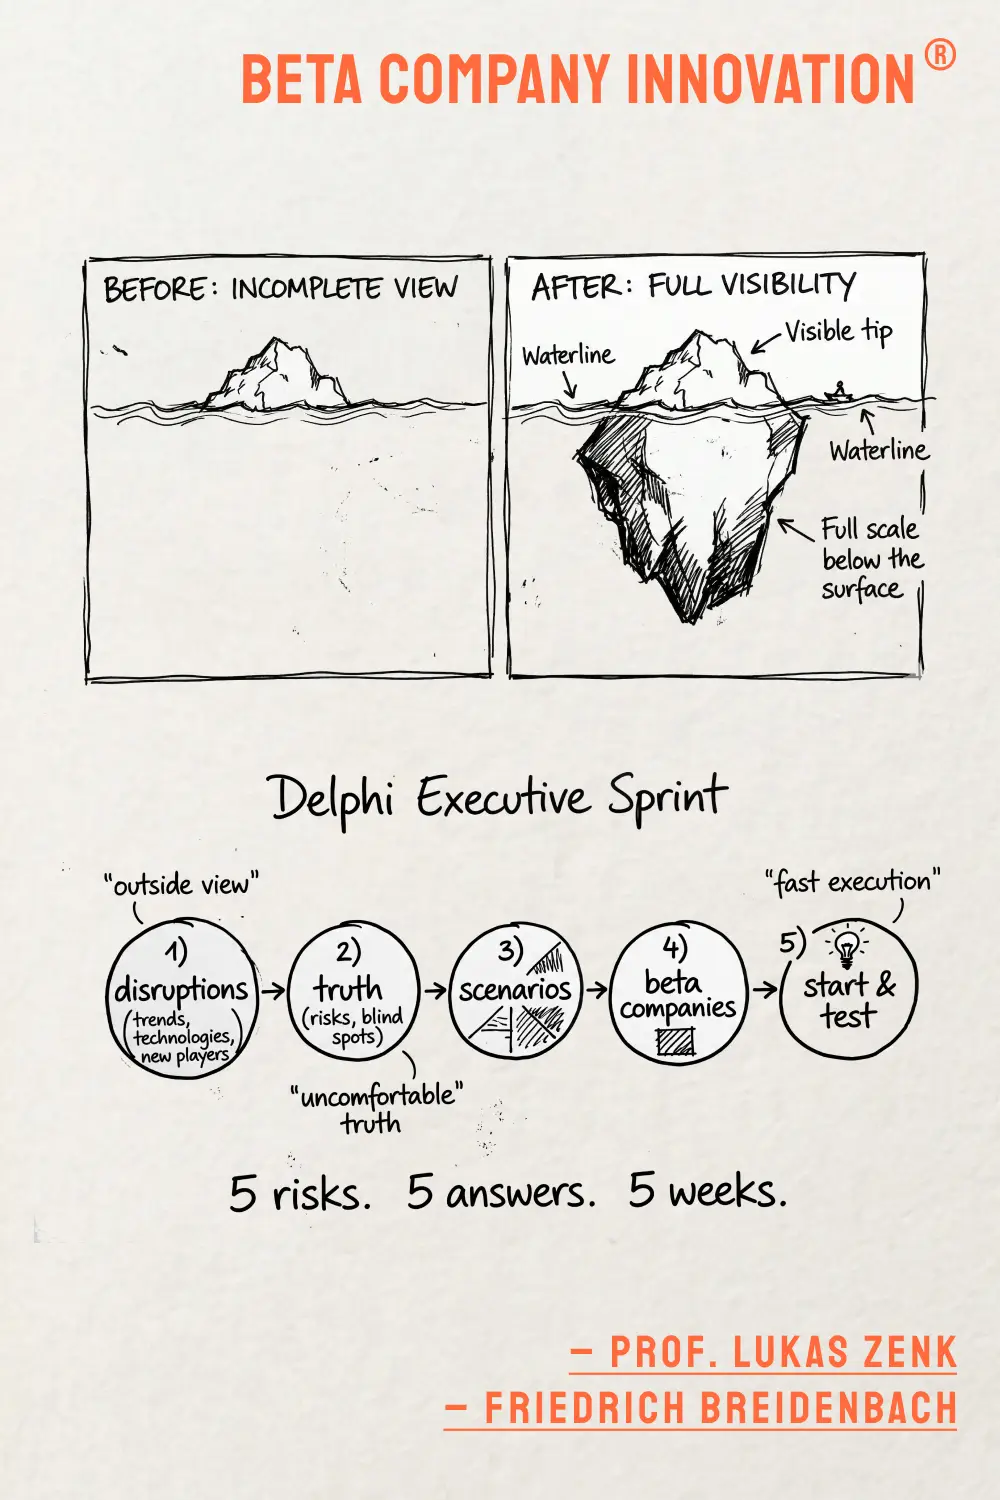 BETA COMPANY INNOVATION®
BEFORE: INCOMPLETE VIEW
AFTER: FULL VISIBILITY
Visible tip
Waterline
Waterline
Full scale
below the
surface
Delphi Executive Sprint
"outside view"
"fast execution"
1)
disruptions
(trends,
technologies,
new players)
2)
truth
(risks, blind
spots)
"uncomfortable"
truth
3)
scenarios
4)
beta
companies
5)
start &
test
5 risks. 5 answers. 5 weeks.
– PROF. LUKAS ZENK
– FRIEDRICH BREIDENBACH